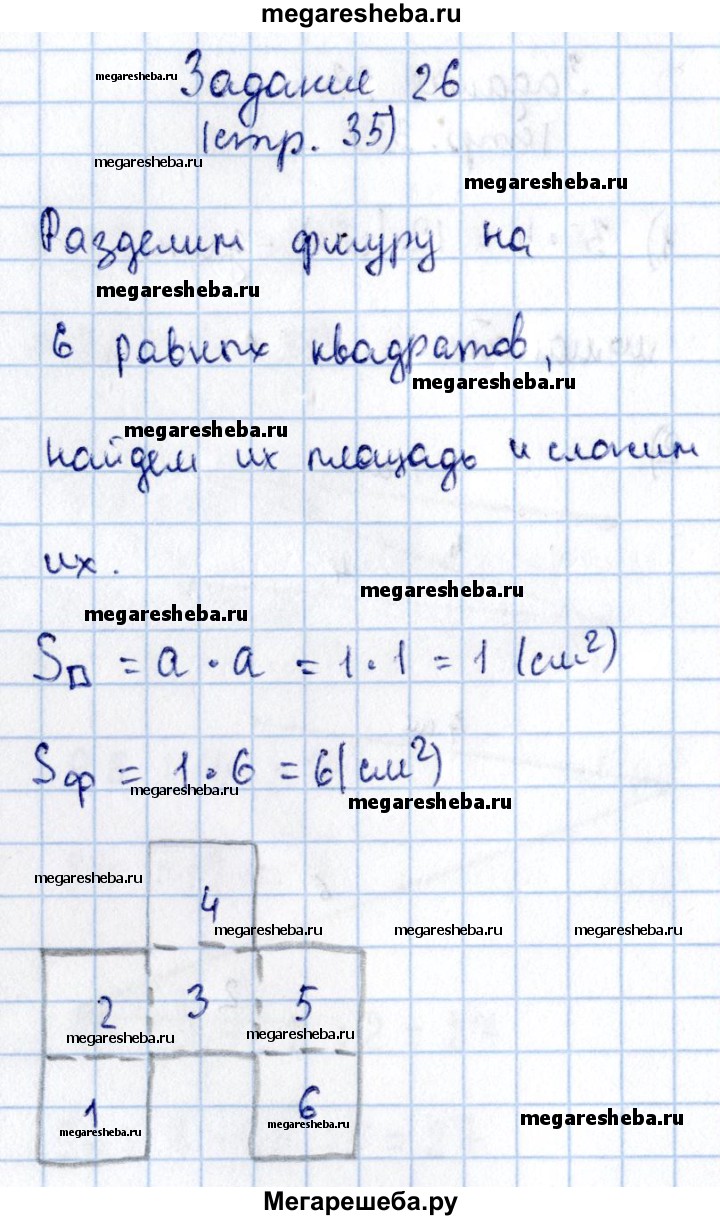 megaresheba.ru
megaresheba.ru
Задание 26
(стр. 35)
megaresheba.ru
megaresheba.ru
Разделим фигуру на
megaresheba.ru
6 равных квадратов,
megaresheba.ru
megaresheba.ru
найдем их площадь и сложим
их.
megaresheba.ru
megaresheba.ru
S□ = a · a = 1 · 1 = 1 (см²)
Sф = 1 · 6 = 6 (см²)
megaresheba.ru
megaresheba.ru
megaresheba.ru
4
megaresheba.ru
megaresheba.ru
megaresheba.ru
2 3 5
megaresheba.ru
megaresheba.ru
1 6
megaresheba.ru
megaresheba.ru
megaresheba.ru
Мегарешеба.ру